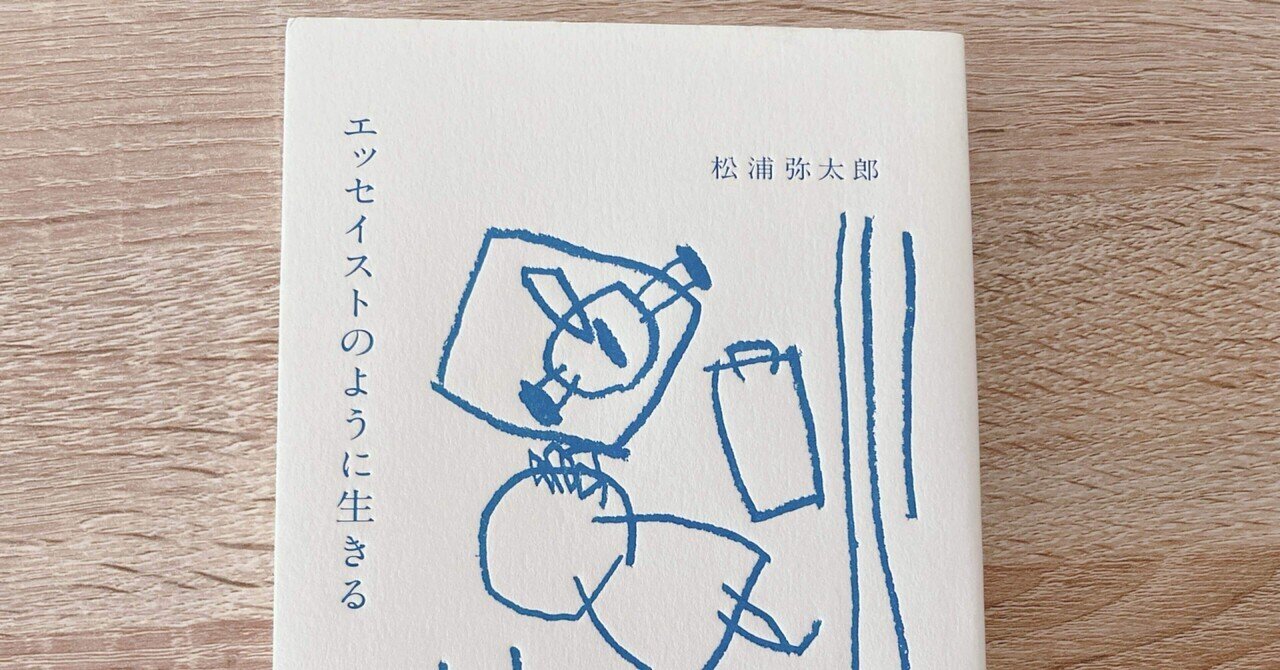 エッセイストのように生きる
松浦弥太郎